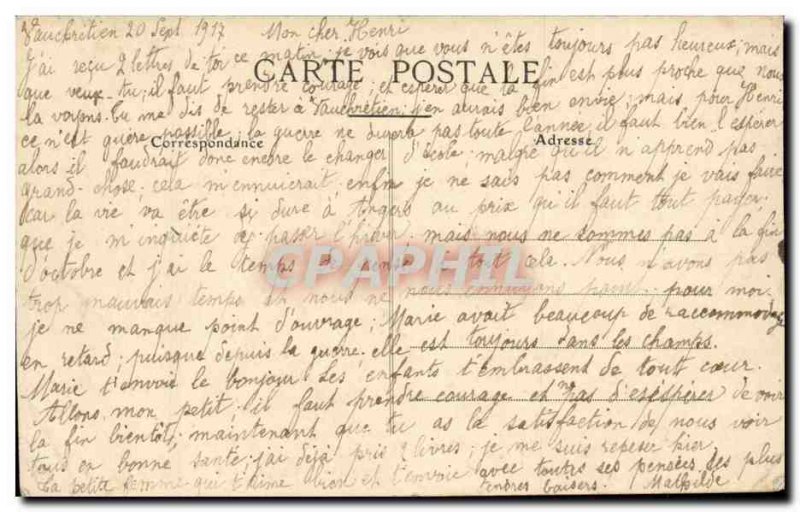 Vauchrétien 20 Sept 1917 Mon cher Henri
J'ai reçu 2 lettres de toi ce matin; je vois que vous n'êtes toujours pas heureux; mais
que veux-tu; il faut prendre courage; et espérer que la fin est plus proche que nous
CARTE POSTALE
la voyons. tu me dis de rester à Vauchrétien; j'en aurais bien envie; mais pour Henri
ce n'est guère possible; la guerre ne durera pas toute l'année; il faut bien l'espérer
Correspondance
Adresse
alors il faudrait donc encore le changer d'école; malgré qu'il n'apprend pas
grand-chose, cela m'ennuierait, enfin je ne sais pas comment je vais faire
car la vie va être si dure à Angers au prix qu'il faut tout payer;
que je m'inquiète de passer l'hiver, mais nous ne sommes pas à la fin
d'octobre et j'ai le temps de penser à tout cela. Nous n'avons pas
CPAPHIL
trop mauvais temps et nous ne nous ennuyons pas; pour moi
je ne manque point d'ouvrage; Marie avait beaucoup de raccommodage
en retard; puisque depuis la guerre, elle est toujours dans les champs.
Marie t'envoie le bonjour. Les enfants t'embrassent de tout cœur.
Allons, mon petit, il faut prendre courage et pas désespérer de voir
la fin bientôt, maintenant que tu as la satisfaction de nous voir
tous en bonne santé; j'ai déjà pris 2 livres; je me suis repeser hier
La petite femme qui t'aime bien et t'envoie avec toutes ses pensées les plus
tendres baisers. Mathilde